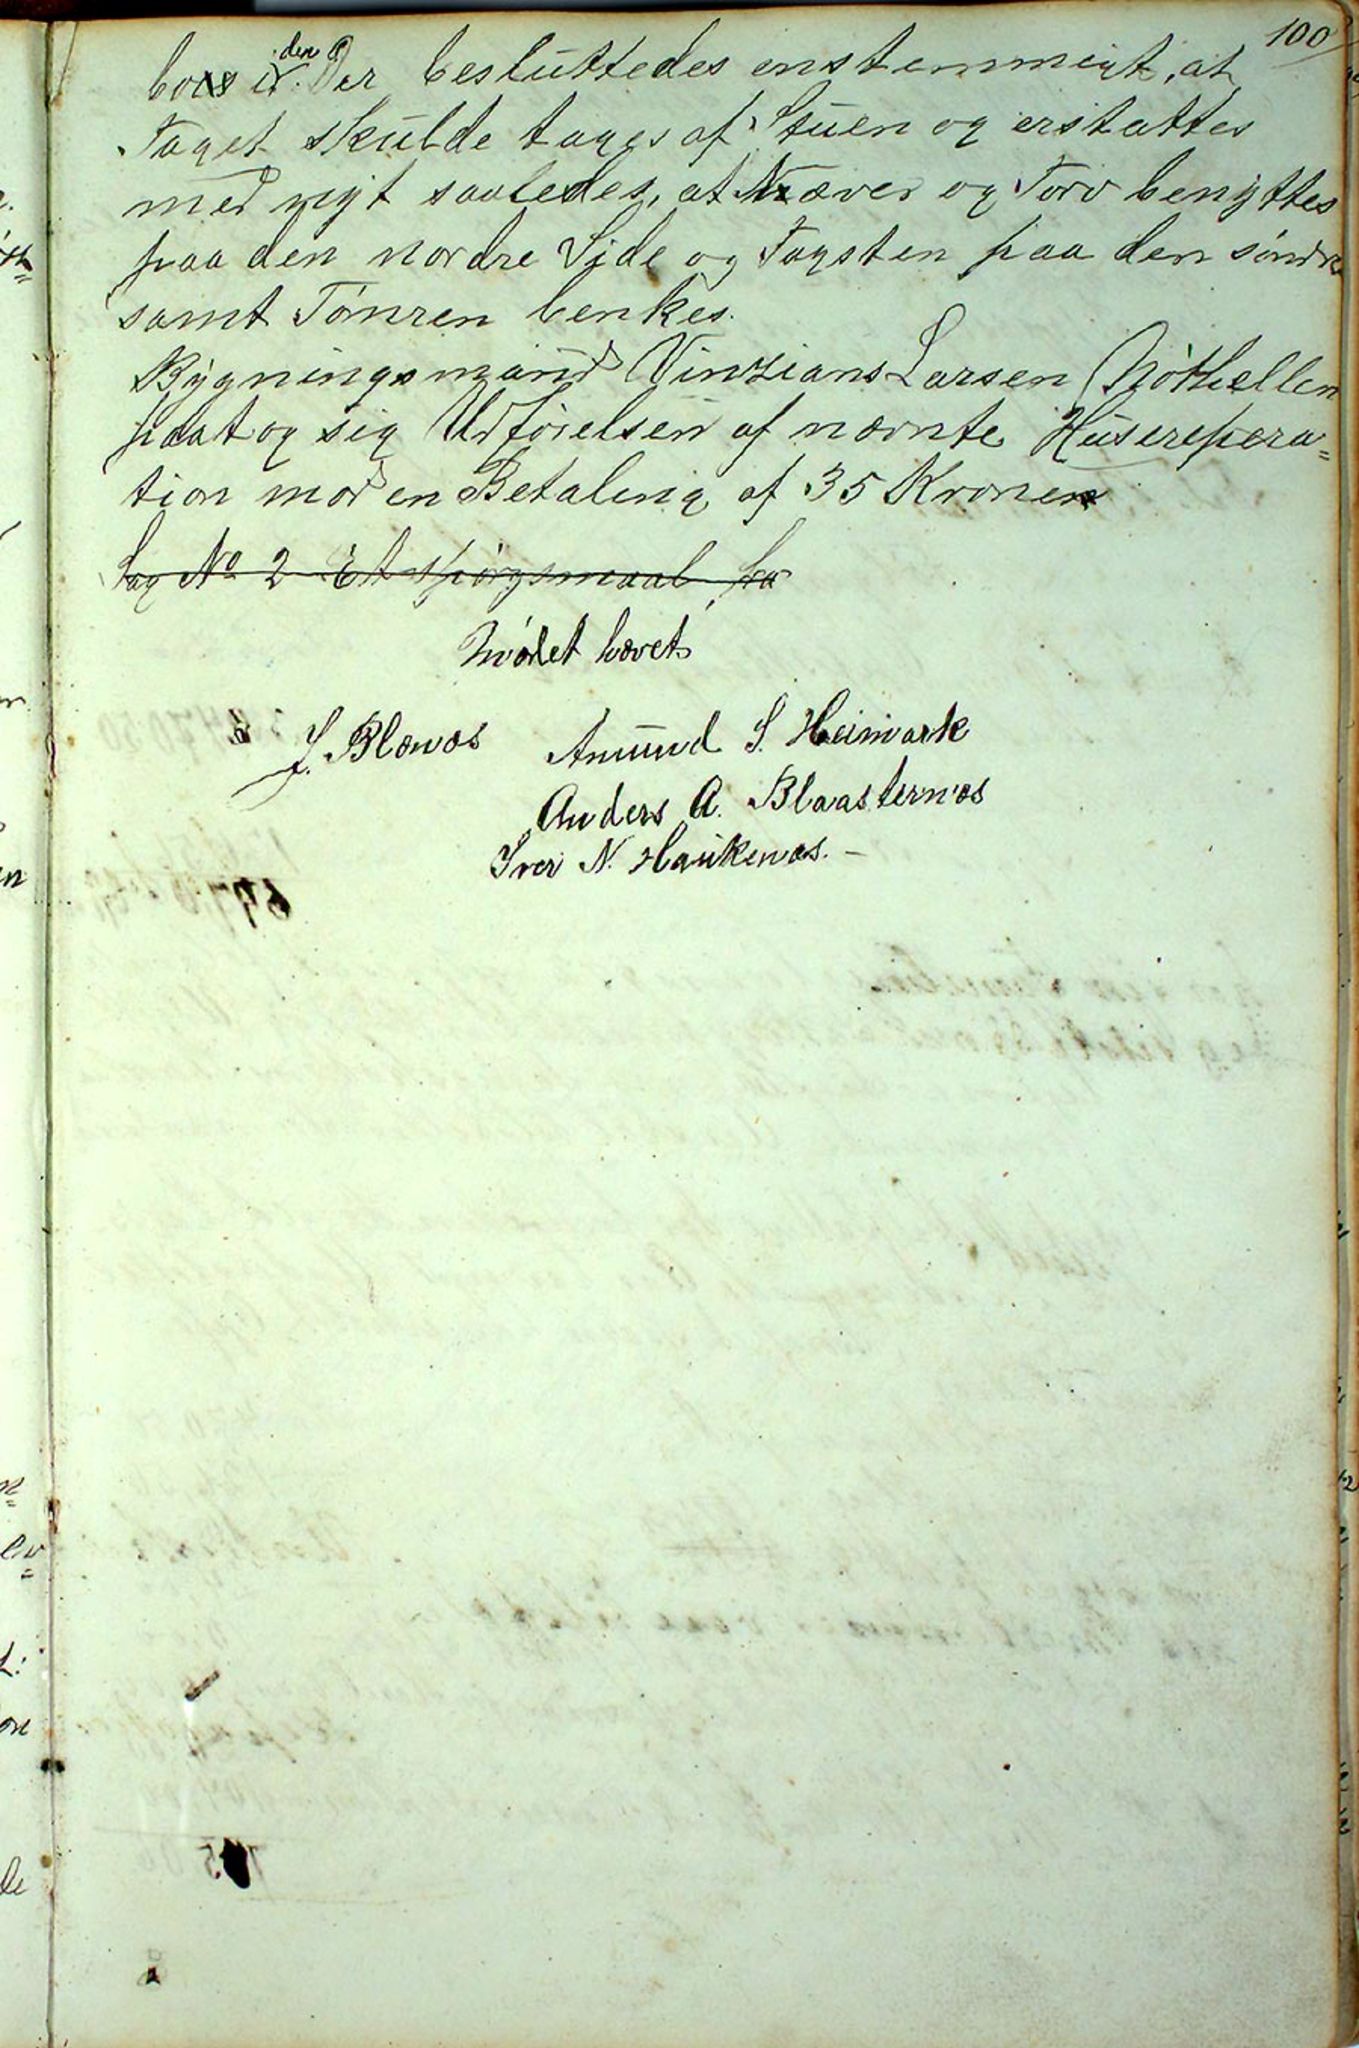 100
boes i den. Der besluttedes enstemmigt, at
Taget skulde tages af Stuen og erstattes
med nyt saaledes, at Næver og Torv benyttes
paa den nordre Side og Tagsten paa den søndre
samt Tømren benkes.
Bygningsmand Vinzians Larsen Nøthellen
paatog sig Udførelsen af nævnte Huserepera=
tion mod en Betaling af 35 Kroner
Sag No 2 Et spørgsmaal fra
Mødet hævet
J. Blænæs Amund S. Heimark
Anders A. Blaasternæs
Iver N. Haukenæs. –